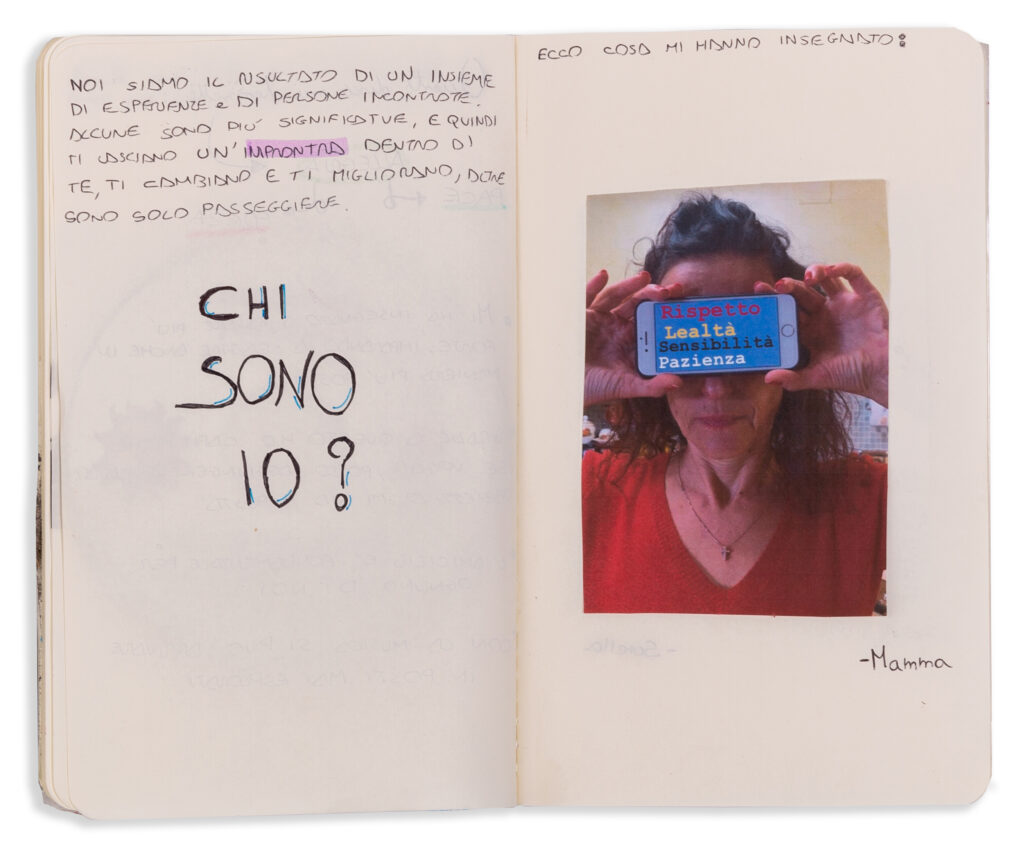 NOI SIAMO IL RISULTATO DI UN INSIEME
DI ESPERIENZE e DI PERSONE INCONTRATE.
ALCUNE SONO PIÙ SIGNIFICATIVE, E QUINDI
TI LASCIANO UN'IMPRONTA DENTRO DI
TE, TI CAMBIANO E TI MIGLIORANO, ALTRE
SONO SOLO PASSEGGIERE.
CHI
SONO
IO?
ECCO COSA MI HANNO INSEGNATO:
Rispetto
Lealtà
Sensibilità
Pazienza
-Mamma